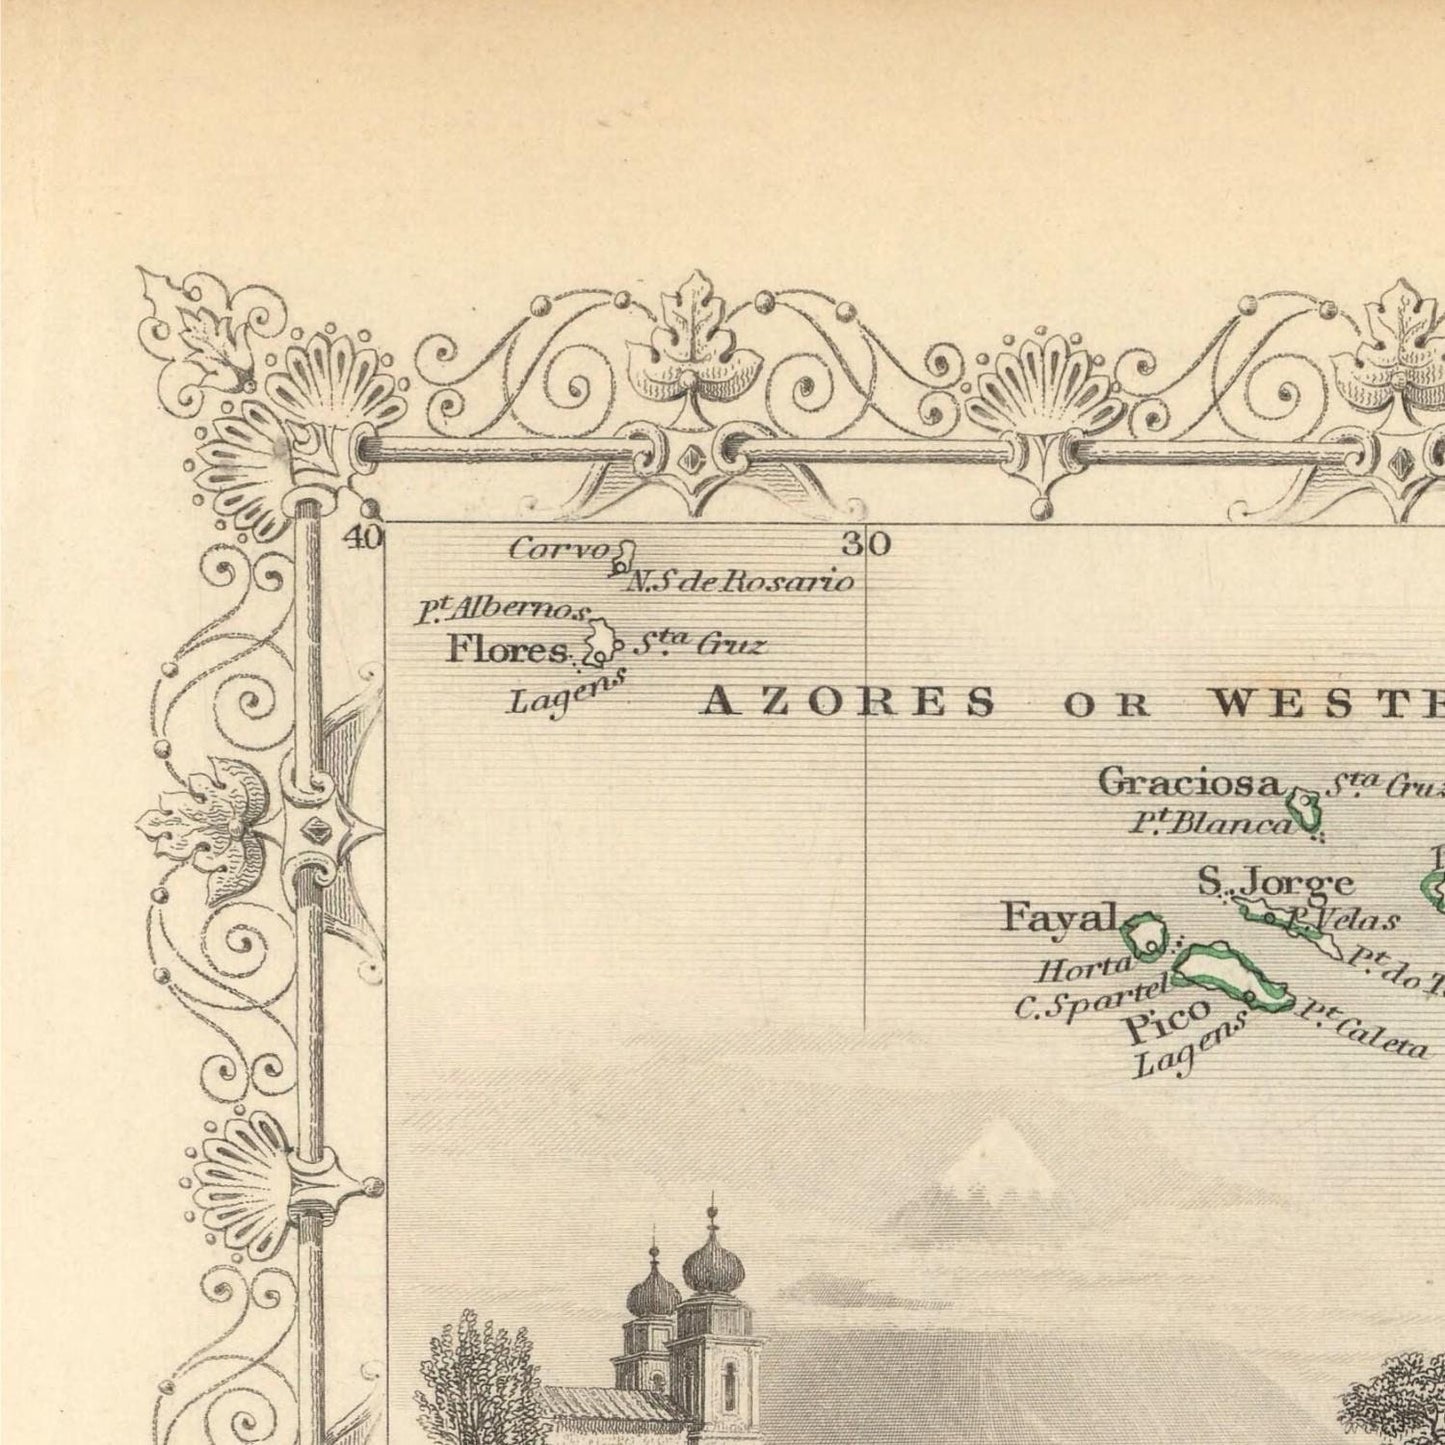 40
30
Corvo
N.S de Rosario
Pt. Albernos
Flores
Sta. Cruz
Lagens
AZORES OR WESTE
Graciosa
Sta. Cruz
Pt. Blanca
S. Jorge
P. Velas
Fayal
Horta
Pt. do T
C. Spartel
Pico
Pt. Caleta
Lagens